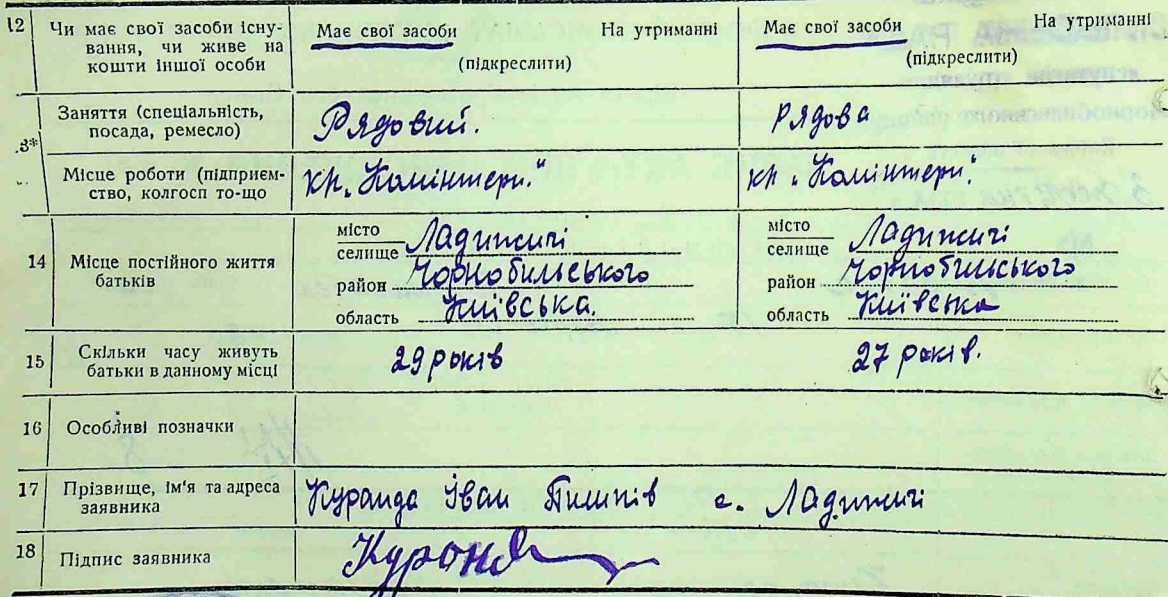 12 Чи має свої засоби існу-
вання, чи живе на
кошти іншої особи
Має свої засоби На утриманні
(підкреслити)
Має свої засоби На утриманні
(підкреслити)
3* Заняття (спеціальність,
посада, ремесло)
Рядовий.
Рядова
Місце роботи (підприєм-
ство, колгосп то-що
кп. „Комінтерн."
кп. „Комінтерн."
14 Місце постійного життя
батьків
місто
селище Ладижичі
район Чорнобильського
область Київська.
місто
селище Ладижичі
район Чорнобильського
область Київська
15 Скільки часу живуть
батьки в данному місці
29 років
27 років.
16 Особливі позначки
17 Прізвище, ім'я та адреса
заявника
Куранда Іван с. Ладижичі
18 Підпис заявника